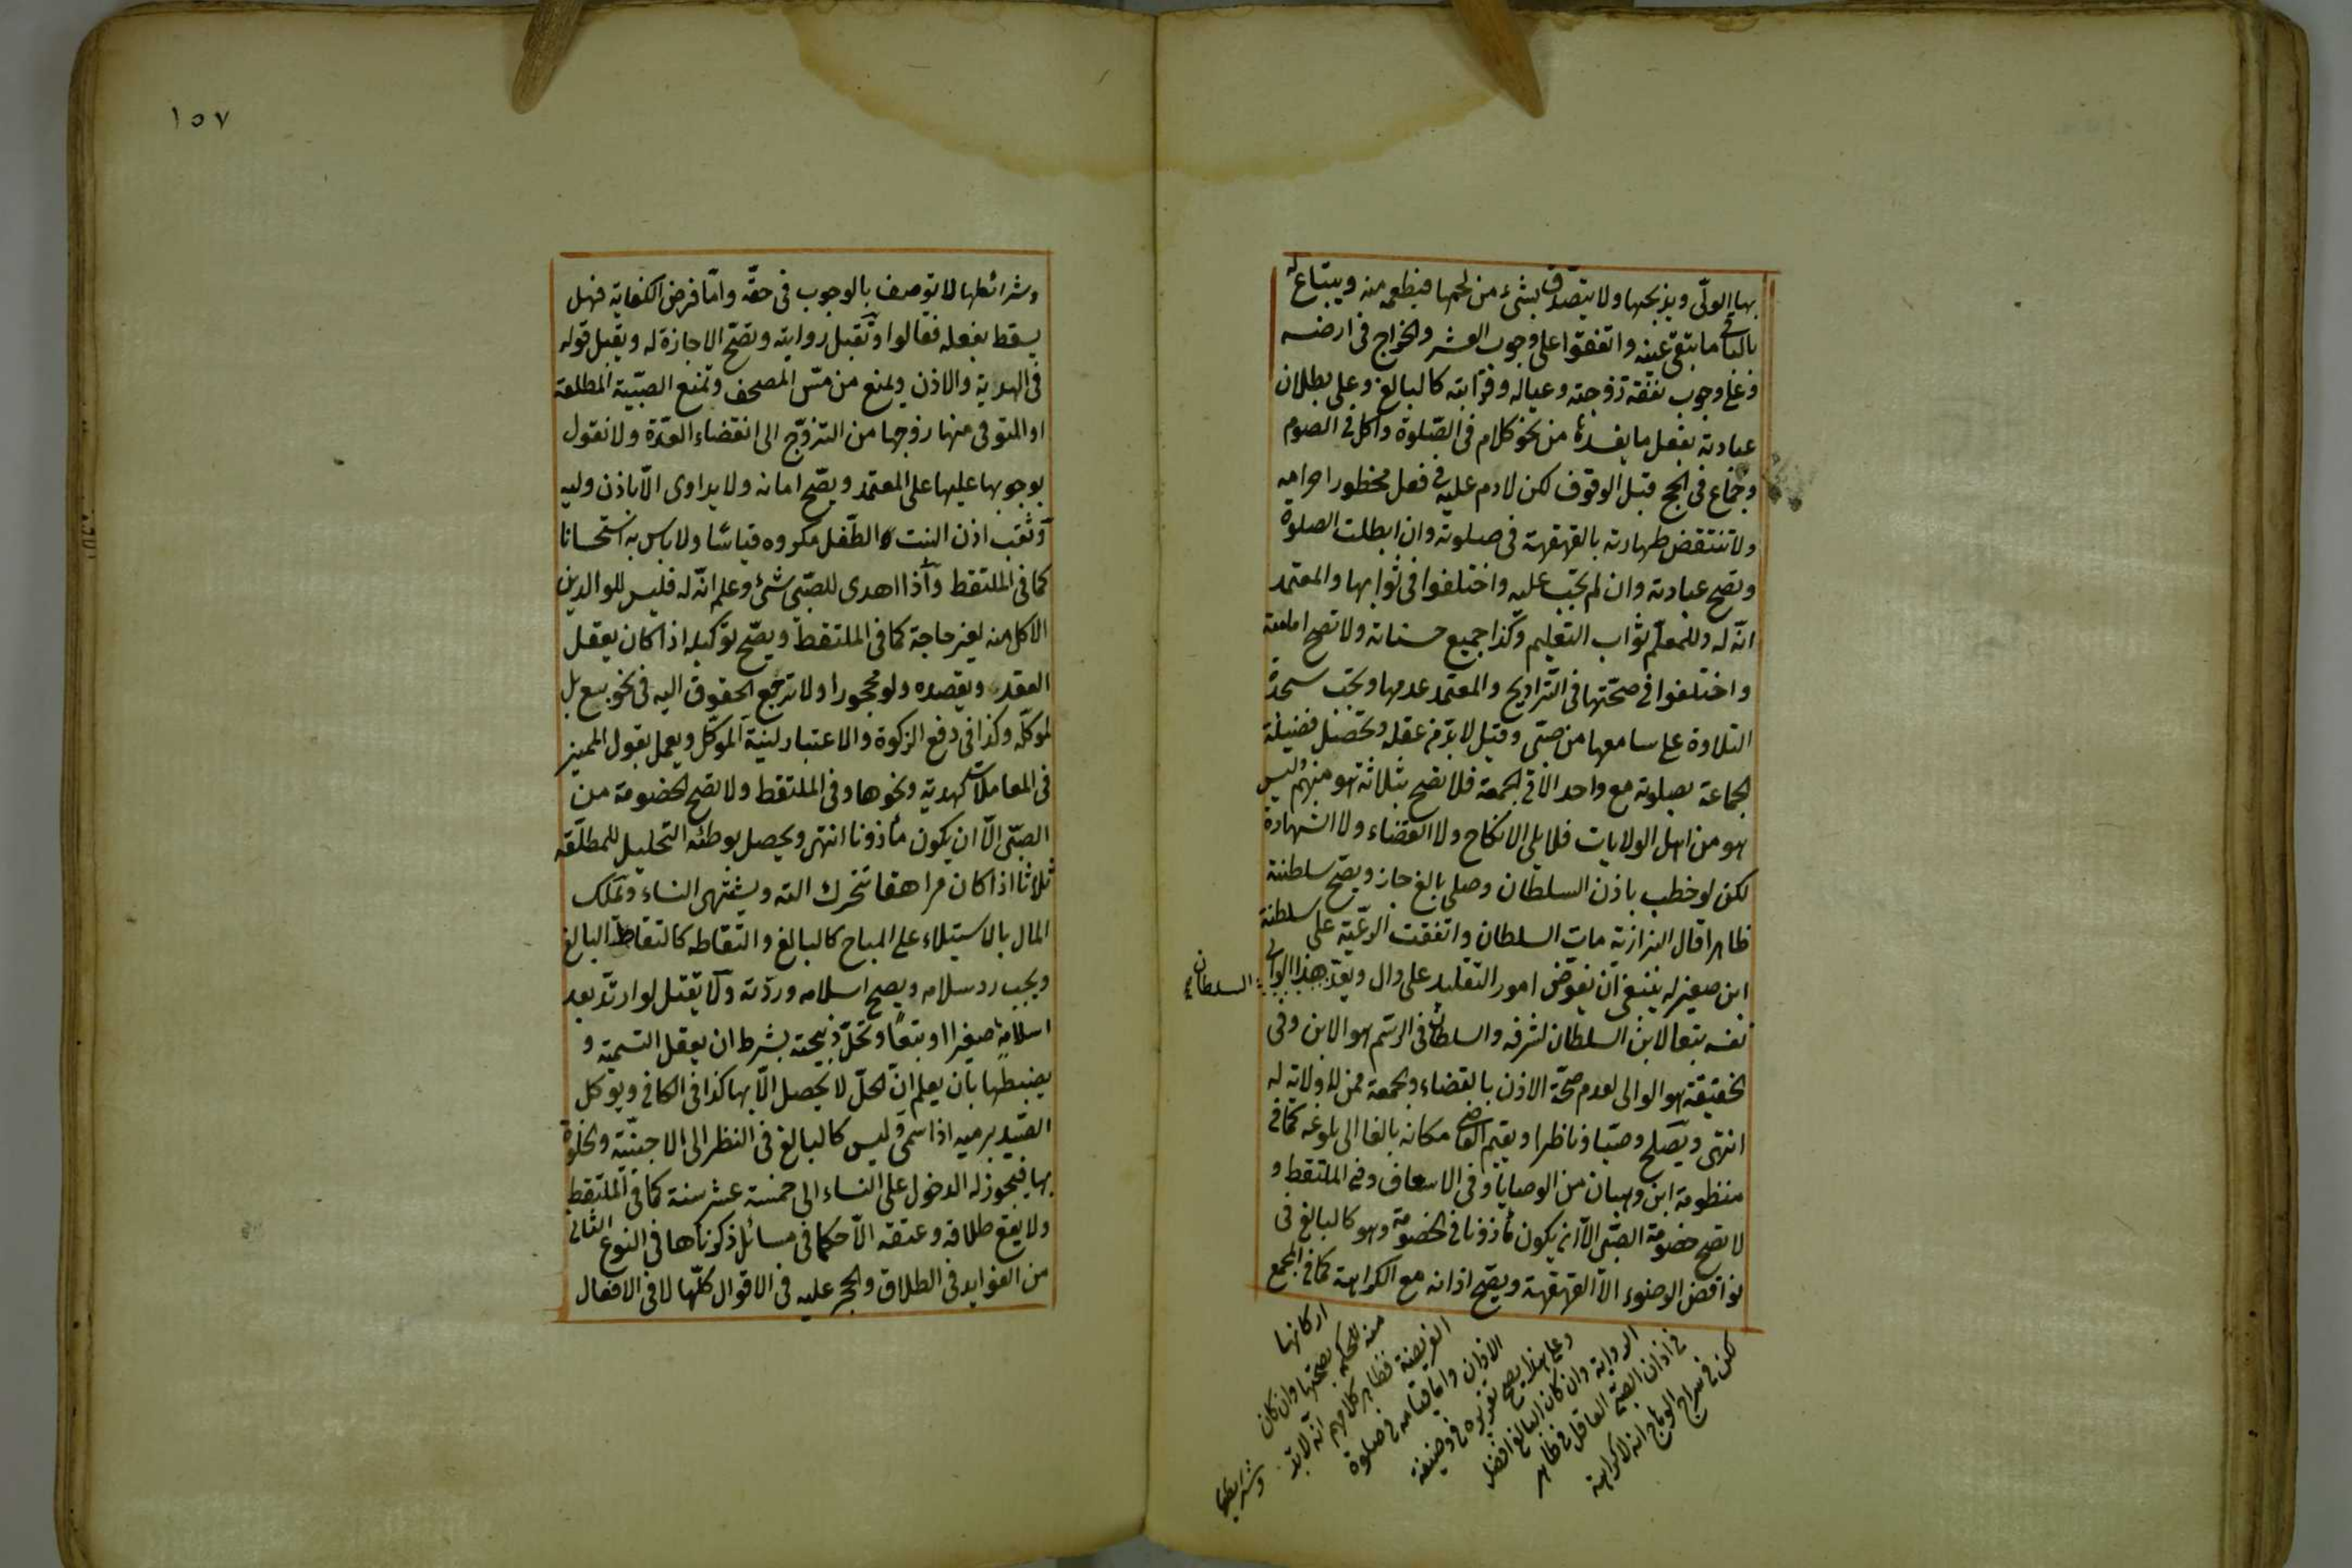 بها الولى ويذبحها ولا يتصدق بشىء من لحمها فيطعمه منه ويبتاع له
بالباقى ما تبقى عينه واتفقوا على وجوب العشر والخراج فى ارضه
وعلى وجوب نفقة زوجته وعياله وقرابته كالبالغ وعلى بطلان
عبادته بفعل ما يفسدها من نحو كلام فى الصلوة واكل فى الصوم
وجماع فى الحج قبل الوقوف لكن لا دم عليه فى فعل محظور احرامه
ولا تنتقض طهارته بالقهقهة فى صلوته وان ابطلت الصلوة
وتصح عبادته وان لم تجب عليه واختلفوا فى ثوابها والمعتمد
انه له وللمعلم ثواب التعليم وكذا جميع حسناته ولا تصح امامته
واختلفوا فى صحتها فى التراويح والمعتمد عدمها وتجب سجدة
التلاوة على سامعها من صبى وقيل لا بد من عقله وتحصل فضيلة
الجماعة بصلوته مع واحد الا فى الجمعة فلا تصح بثلاثة هو منهم وليس
هو من اهل الولايات فلا يلى الانكاح ولا القضاء ولا الشهادة
لكن لو خطب باذن السلطان وصلى بالغ جاز ويصح سلطنته
ظاهرا قال البزازية مات السلطان واتفقت الرعية على سلطنة
ابن صغير له ينبغى ان تفوض امور التقليد على وال ويعد هذا الوالى
السلطان
نفسه تبعا لابن السلطان لشرفه والسلطان فى الرسم هو الابن وفى
الحقيقة هو الوالى لعدم صحة الاذن بالقضاء والجمعة ممن لا ولاية له
انتهى ويصلح وصيا وناظرا ويقيم القاضى مكانه بالغا الى بلوغه كما فى
منظومة ابن وهبان من الوصايا وفى الاسعاف وفى الملتقط و
لا تصح خصومة الصبى الا ان يكون مأذونا فى الخصومة وهو كالبالغ فى
نواقض الوضوء الا القهقهة ويصح اذانه مع الكراهة كما فى المجمع
لكن فى سراج الوهاج انه لا كراهة
فى اذان الصبى العاقل فى ظاهر
الرواية وان كان البالغ افضل
وعلى هذا يصح تقريره فى وظيفة
الاذان واما قيامه فى صلوة
الفريضة فظاهر كلامهم انه لا بد
منه للحكم بصحتها وان كان
اركانها
وشرايطها
١٥٧
وشرائطها لا توصف بالوجوب فى حقه واما فرض الكفاية فهل
يسقط بفعله فقالوا وتقبل روايته وتصح الاجازة له ويقبل قوله
فى الهدية والاذن ويمنع من مس المصحف وتمنع الصبية المطلقة
او المتوفى عنها زوجها من التزوج الى انقضاء العدة ولا نقول
بوجوبها عليها على المعتمد ويصح امانه ولا يداوى الا باذن وليه
وثقب اذن البنت الطفل مكروه قياسا ولا باس به استحسانا
كما فى الملتقط واذا اهدى للصبى شىء وعلم انه له فليس للوالدين
الاكل منه لغير حاجة كما فى الملتقط ويصح توكيله اذا كان يعقل
العقد ويقصده ولو محجورا ولا ترجع الحقوق اليه فى نحو بيع بل
لموكله وكذا فى دفع الزكوة والاعتبار لنية الموكل ويعمل بقول المميز
فى المعاملات كهدية ونحوها وفى الملتقط ولا تصح الخصومة من
الصبى الا ان يكون مأذونا انتهى ويحصل بوطئه التحليل للمطلقة
ثلاثا اذا كان مراهقا تتحرك آلته ويشتهى النساء وتملك
المال بالاستيلاء على المباح كالبالغ والتقاطه كالتقاط البالغ
ويجب رد سلامه ويصح اسلامه وردته ولا يقتل لو ارتد بعد
اسلامه صغيرا او تبعا وتحل ذبيحته بشرط ان يعقل التسمية و
يضبطها بان يعلم ان الحل لا يحصل الا بها كذا فى الكافى ويؤكل
الصيد برميه اذا سمى وليس كالبالغ فى النظر الى الاجنبية والخلوة
بها فيجوز له الدخول على النساء الى خمسة عشر سنة كما فى الملتقط
ولا يقع طلاقه وعتقه الا حكما فى مسائل ذكرناها فى النوع الثانى
من الفوايد فى الطلاق والحجر عليه فى الاقوال كلها لا فى الافعال